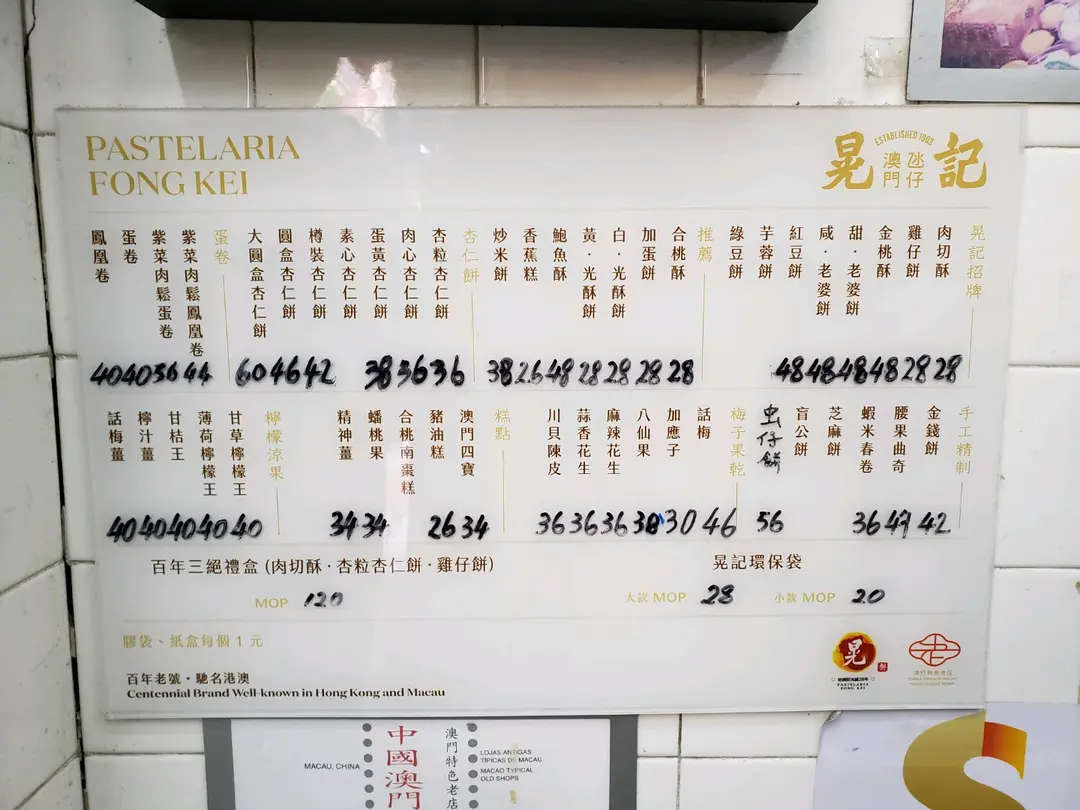 PASTELARIA
FONG KEI
晃記
ESTABLISHED 1902
澳門
氹仔
晃記招牌
肉切酥 28
雞仔餅 28
金桃酥 48
甜·老婆餅 48
咸·老婆餅 48
紅豆餅 48
芋蓉餅
綠豆餅
推薦
合桃酥 28
加蛋餅 28
白·光酥餅 28
黃·光酥餅 28
鮑魚酥 48
香蕉糕 26
炒米餅 38
杏仁餅
杏粒杏仁餅 36
肉心杏仁餅 36
蛋黃杏仁餅 38
素心杏仁餅
樽裝杏仁餅 42
圓盒杏仁餅 46
大圓盒杏仁餅 60
蛋卷
紫菜肉鬆鳳凰卷 44
紫菜肉鬆蛋卷 56
蛋卷 40
鳳凰卷 40
手工精制
金錢餅 42
腰果曲奇 47
蝦米春卷 36
芝麻餅
盲公餅
虫仔餅 56
梅子果乾
話梅 46
加應子 30
八仙果 38
麻辣花生 36
蒜香花生 36
川貝陳皮 36
糕點
澳門四寶 34
豬油糕 26
合桃南棗糕
蟠桃果 34
精神薑 34
檸檬涼果
甘草檸檬王 40
薄荷檸檬王 40
甘桔王 40
檸汁薑 40
話梅薑 40
百年三絕禮盒 (肉切酥·杏粒杏仁餅·雞仔餅)
MOP 120
晃記環保袋
大款 MOP 28 小款 MOP 20
膠袋、紙盒每個 1 元
百年老號·馳名港澳
Centennial Brand Well-known in Hong Kong and Macau
晃
PASTELARIA
FONG KEI
MACAU, CHINA
中國澳門
澳門特色老店
LOJAS ANTIGAS
TÍPICAS DE MACAU
MACAO TYPICAL
OLD SHOPS